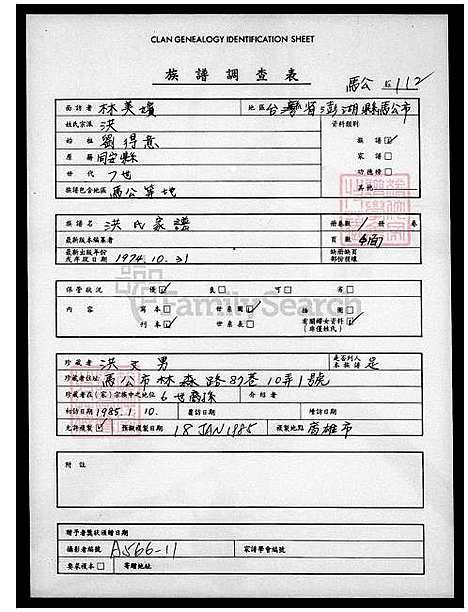 CLAN GENEALOGY IDENTIFICATION SHEET
族譜調查表
馬公 112
面訪者 林美嬪 地區 台灣省澎湖縣馬公市
姓氏宗派 洪 資料類別
始祖 劉得意 族譜☑
原籍 同安縣 家譜□
世代 7世 功德榜□
族譜包含地區 馬公等地 其他
族譜名 洪氏家譜 冊卷數 1 冊 卷
最新版本編纂者 頁數
最新出版年份或序跋日期 1974.10.31 缺冊缺頁部份標誌
保管狀況 優☑ 良□ 可□ 劣□
內容 寫本□ 世系圖☑ 插圖□
刊本☑ 世系表□ 有關婦女資料(非僅姓氏)☑
FamilySearch
珍藏者 洪文男 是否列入本族譜 是
珍藏者住址 馬公市林森路87巷10弄1號
珍藏者在(家)宗族中之地位 6世裔孫 介紹者
初訪日期 1985.1.10. 複訪日期 續訪日期
允許複製☑ 拍攝複製日期 18 JAN 1985 複製地點 高雄市
附註
贈予者獎狀頒贈日期
攝影者編號 A566-11 家譜學會編號
要求複本□ 寄贈地址